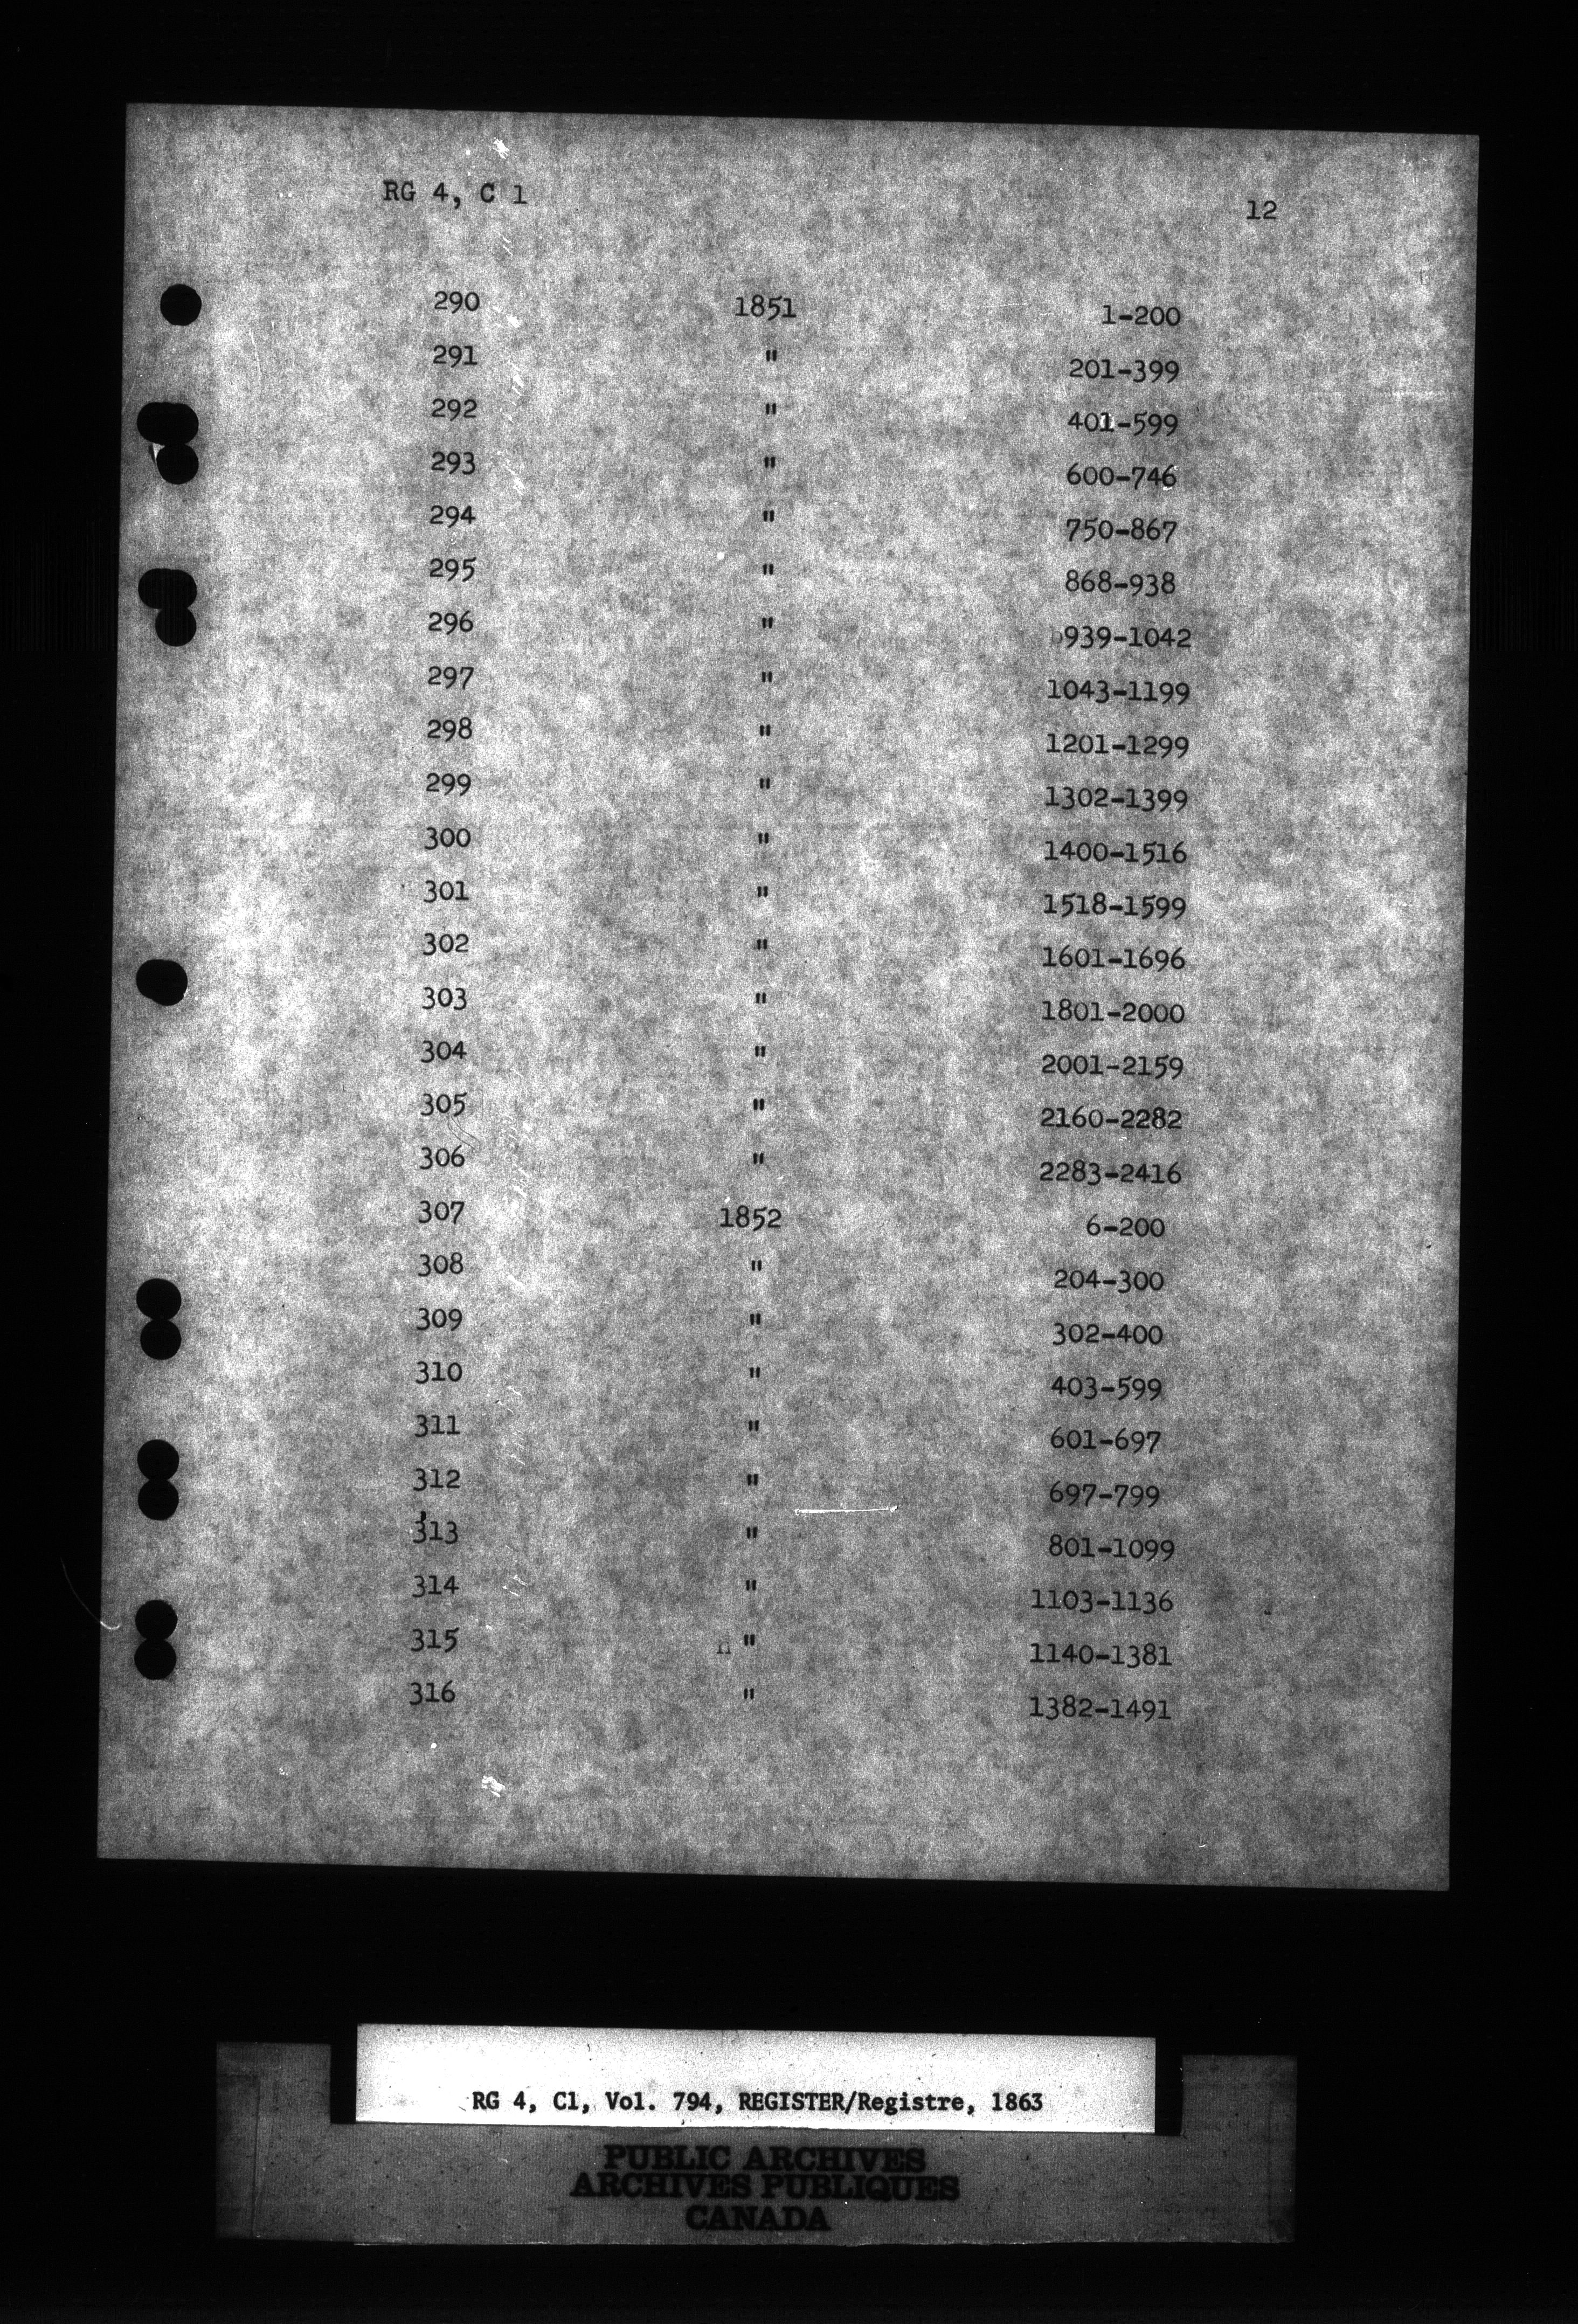 RG 4, C 1 12
290 1851 1-200
291 " 201-399
292 " 401-599
293 " 600-746
294 " 750-867
295 " 868-938
296 " 939-1042
297 " 1043-1199
298 " 1201-1299
299 " 1302-1399
300 " 1400-1516
301 " 1518-1599
302 " 1601-1696
303 " 1801-2000
304 " 2001-2159
305 " 2160-2282
306 " 2283-2416
307 1852 6-200
308 " 204-300
309 " 302-400
310 " 403-599
311 " 601-697
312 " 697-799
313 " 801-1099
314 " 1103-1136
315 " 1140-1381
316 " 1382-1491
RG 4, C1, Vol. 794, REGISTER/Registre, 1863
PUBLIC ARCHIVES
ARCHIVES PUBLIQUES
CANADA